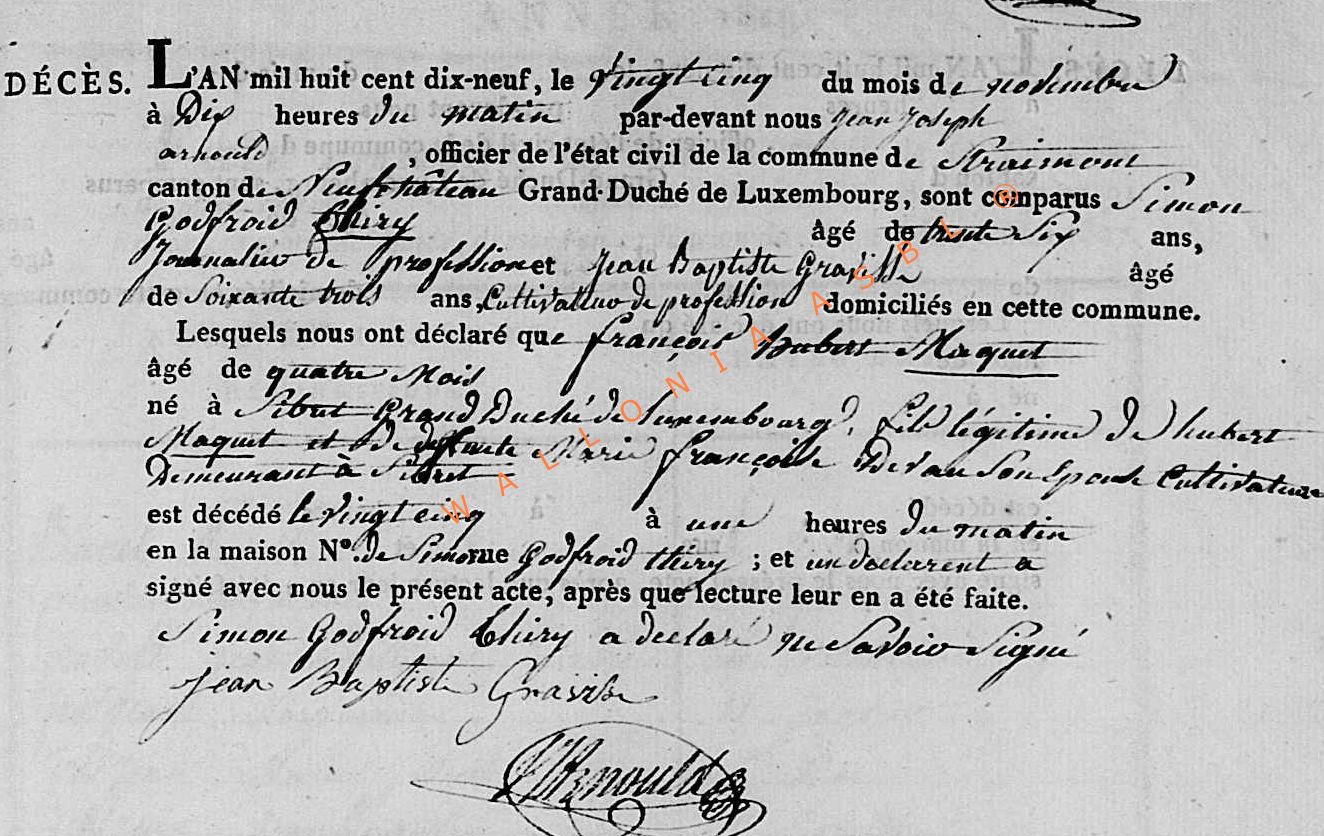 DÉCÈS. L'AN mil huit cent dix-neuf, le vingt cinq du mois de novembre
à Dix heures du matin par-devant nous jean joseph
arnould, officier de l'état civil de la commune de Straimont
canton de Neufchâteau Grand-Duché de Luxembourg, sont comparus Simon
Godfroid Thiry âgé de trente Six ans,
Journalier de profession et jean Baptiste Gravisse âgé
de Soixante trois ans, Cultivateur de profession domiciliés en cette commune.
Lesquels nous ont déclaré que françois hubert Maquet
âgé de quatre Mois
né à Sibret Grand Duché de Luxembourg, fils légitime de hubert
Maquet et de deffunte Marie françoise Son Epouse Cultivateur
Demeurant à Sibret
est décédé le vingt cinq à une heures du matin
en la maison N° de Simon rue Godfroid thiry ; et un declarent a
signé avec nous le présent acte, après que lecture leur en a été faite.
Simon Godfroid Thiry a declaré ne Savoir Signé
jean Baptiste Gravisse
Arnould
WALLONIA ASBL ®